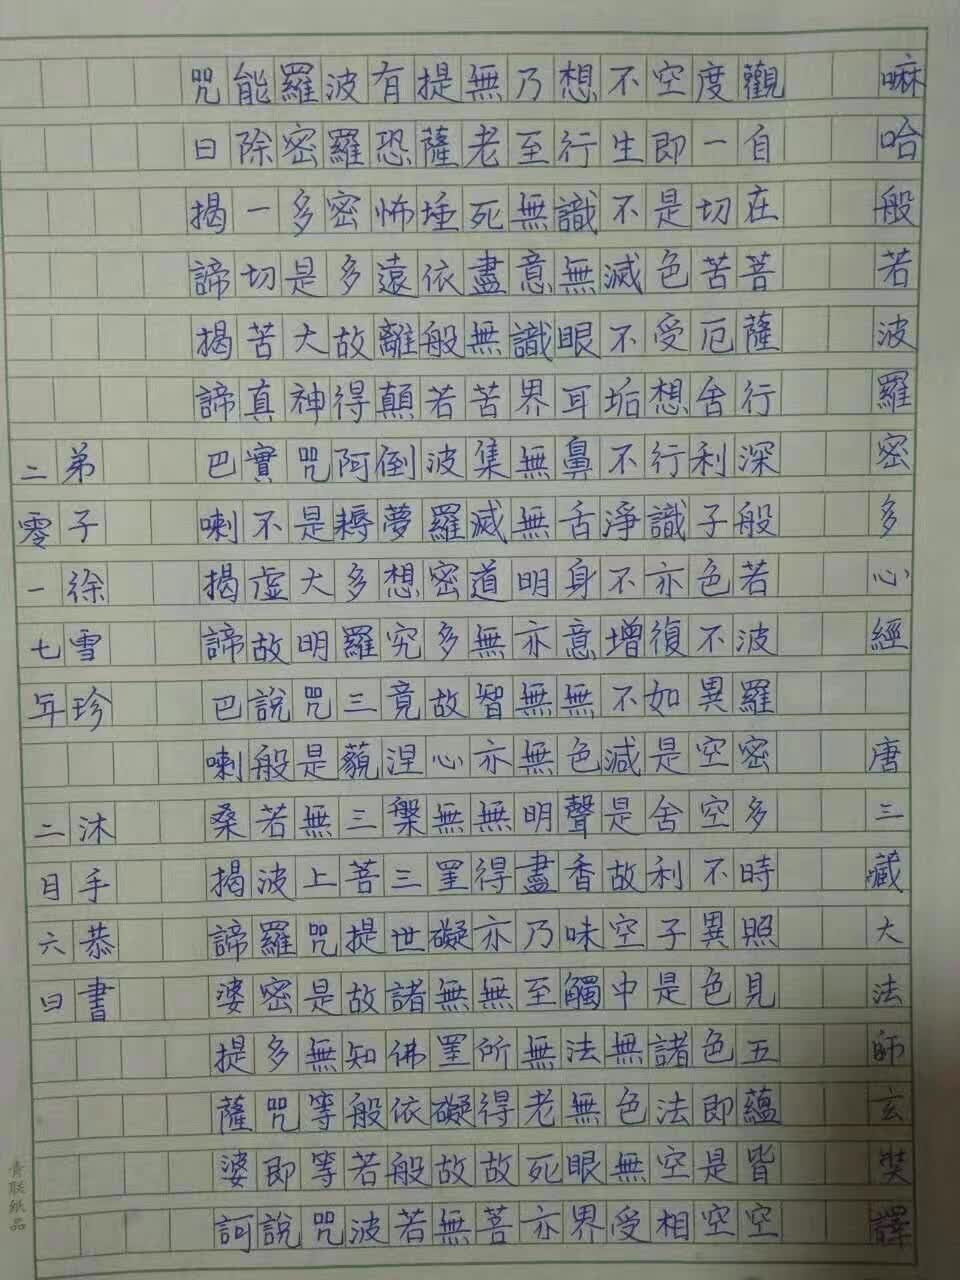 嘛哈般若波羅密多心經 唐三藏大法師玄奘譯
觀自在菩薩行深般若波羅密多時照見五蘊皆空
度一切苦厄舍利子色不異空空不異色色即是空
空即是色受想行識亦復如是舍利子是諸法空相
不生不滅不垢不淨不增不減是故空中無色無受
想行識無眼耳鼻舌身意無色聲香味觸法無眼界
乃至無意識界無無明亦無無明盡乃至無老死亦
無老死盡無苦集滅道無智亦無得亦無所得故菩
提薩埵依般若波羅密多故心無罣礙無罣礙故無
有恐怖遠離顛倒夢想究竟涅槃三世諸佛依般若
波羅密多故得阿耨多羅三藐三菩提故知般若波
羅密多是大神咒是大明咒是無上咒是無等等咒
能除一切苦真實不虛故說般若波羅密多咒即說
咒曰揭諦揭諦巴喇揭諦巴喇桑揭諦婆提薩婆訶
弟子徐雪珍 沐手恭書
二零一七年 二月六日
青联纸品